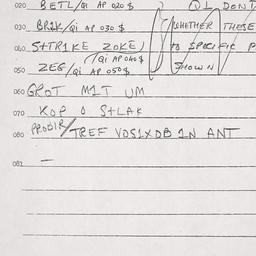 020 BETL/Qi AP 020 $ ① I DONT
030 BRIK/Qi AP 030 $ WHETHER THESE
040 S+TR1KE ZOKE/Qi AP 040 $ TO SPECIFIC P
050 ZEG/Qi AP 050 $ SHOWN
060 GROT M1T UM
070 KOP O S+LAK
080 PROBIR/TREF VOS1XDB 1N ANT
081 —